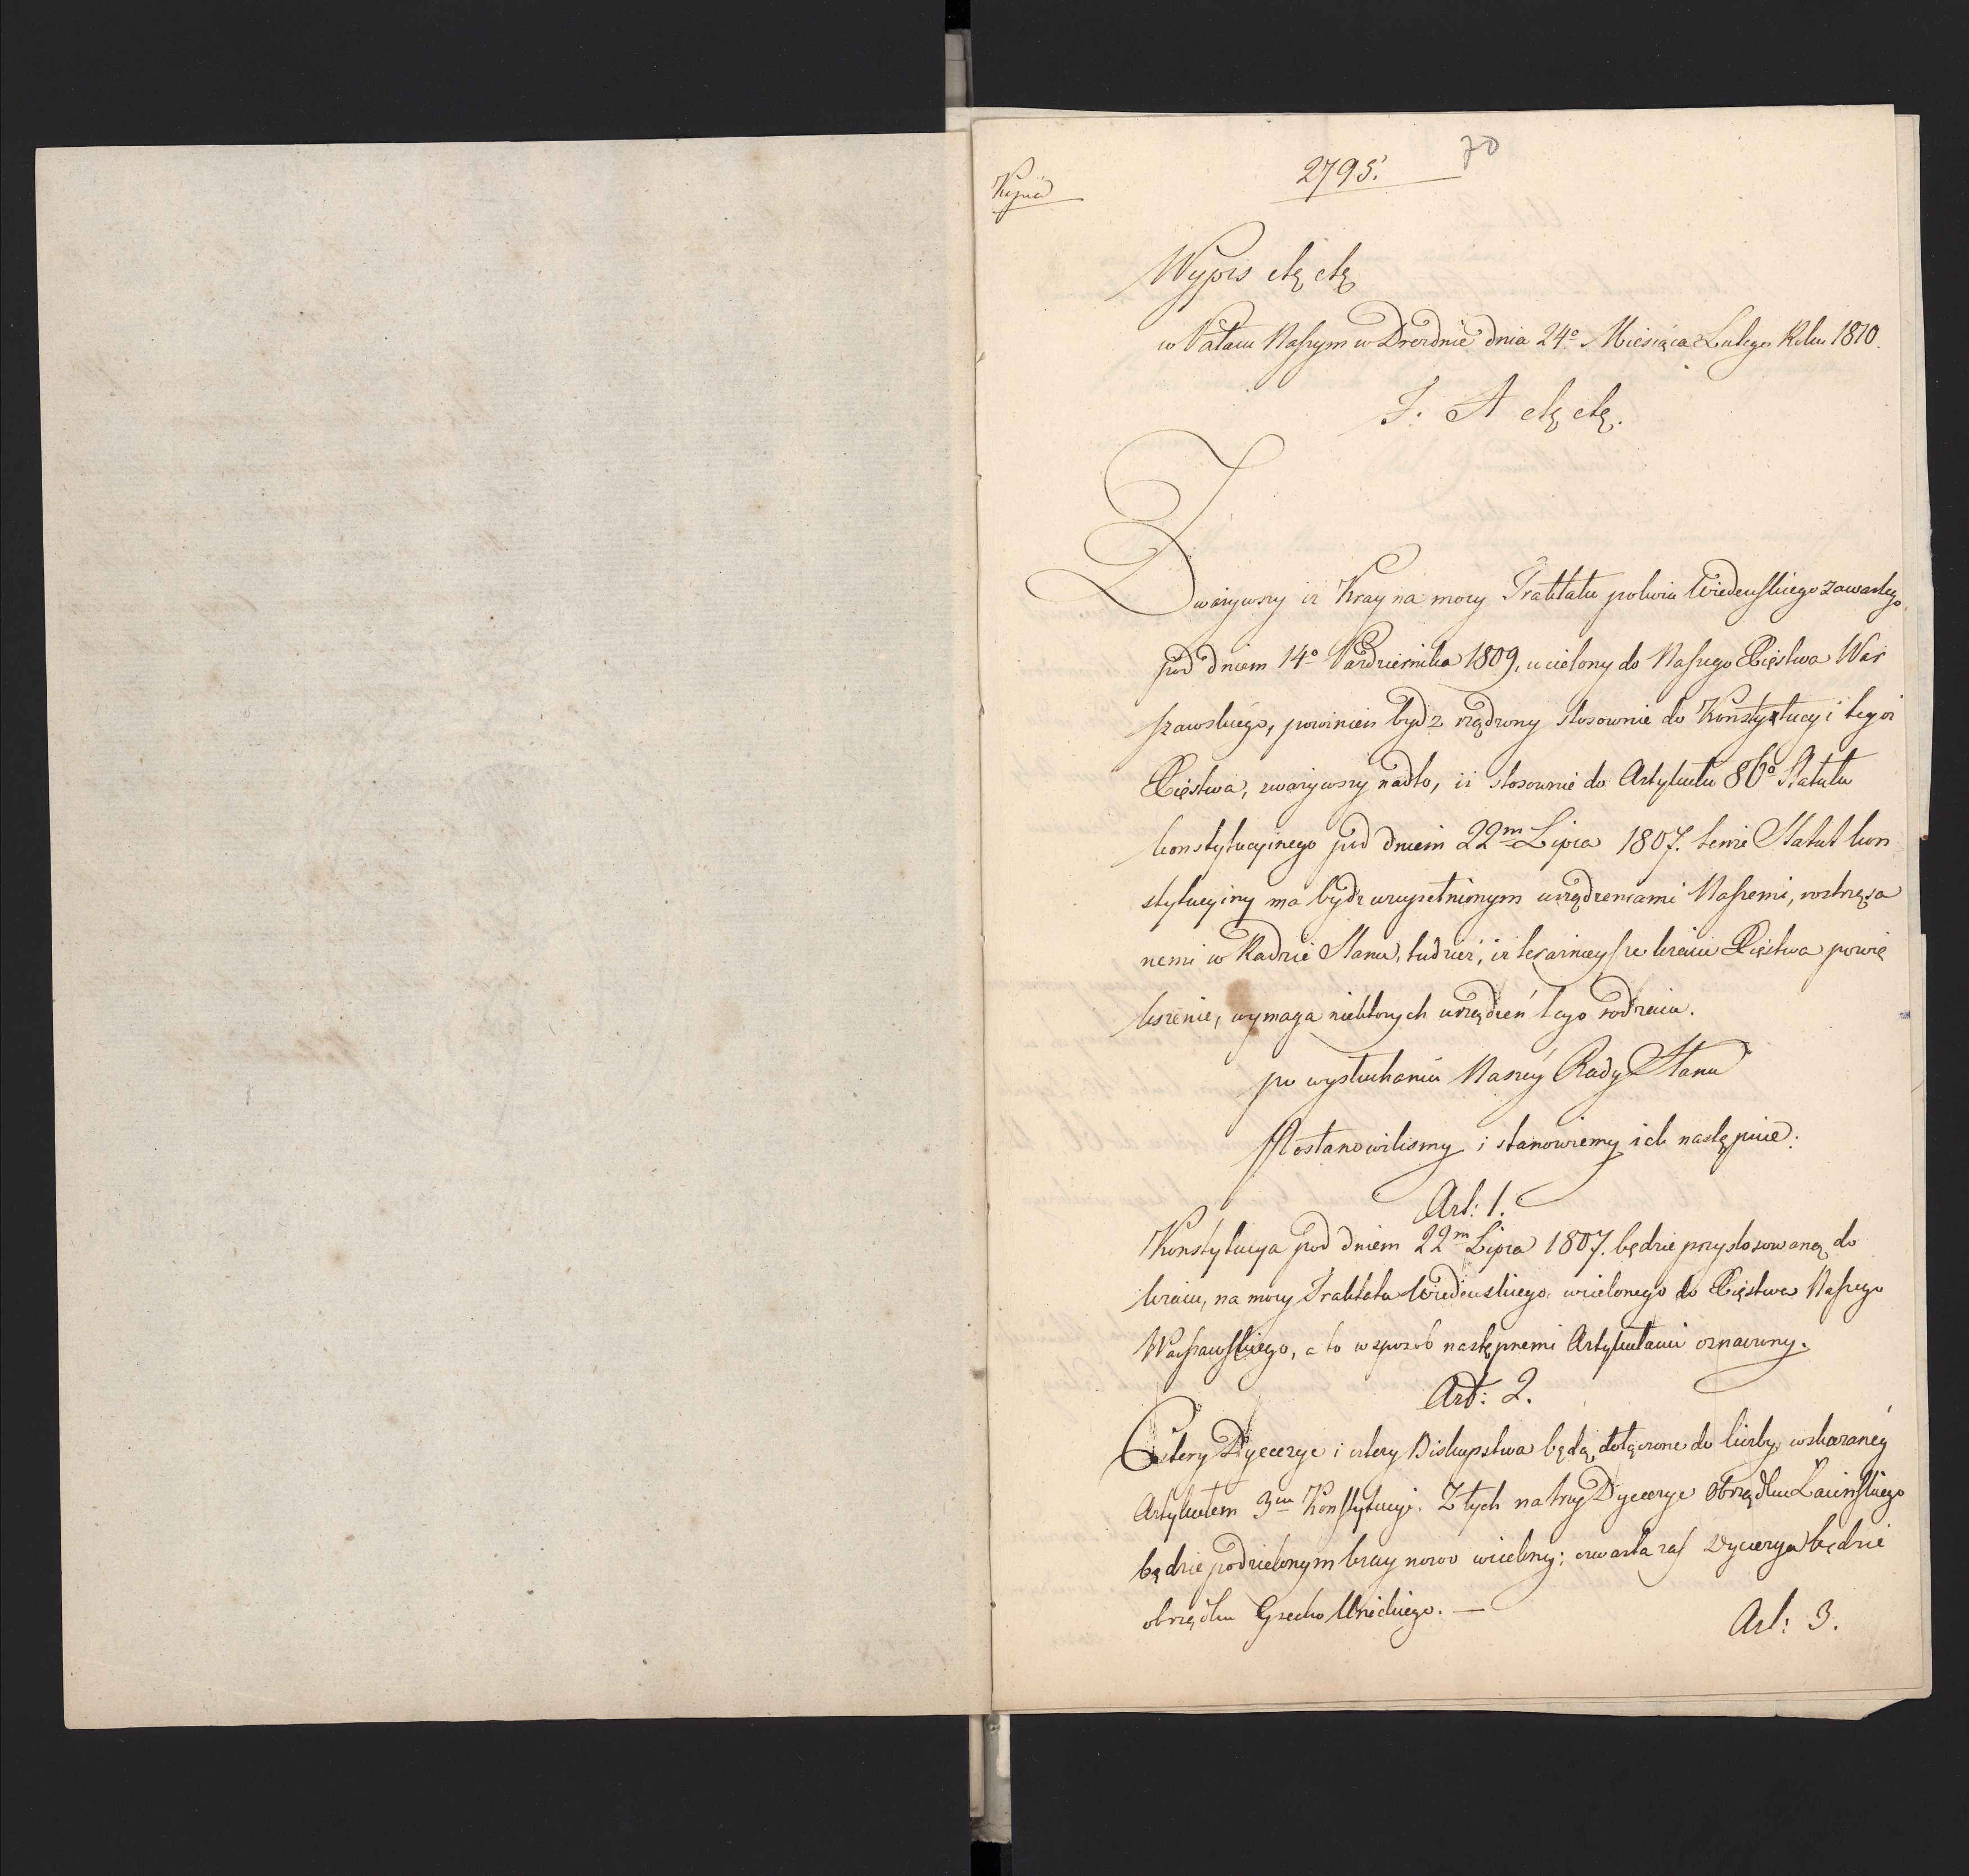 70
2795.
Kopia
Wypis etc etc
w Pałacu Naszym w Dreźnie dnia 24º Miesiąca Lutego Roku 1810.
F. A etc etc.
Zważywszy iż Kray na mocy Traktatu pokoiu Wiedeńskiego zawartego
pod dniem 14º Października 1809, wcielony do Naszego Xięstwa War
szawskiego, powinien bydź rządzony stosownie do Konstytucyi tegoż
Xięstwa, zważywszy nadto, iż stosownie do Artykułu 86º Statutu
konstytucyinego pod dniem 22m Lipca 1807. tenże Statut kon
stytucyiny ma bydź uzupełnionym urządzeniami Naszemi, roztrząsa
nemi w Radzie Stanu, tudzież, iż terażnieysze kraiu Xięstwa powię
kszenie, wymaga niektorych urządzeń tego rodzaiu.
po wysłuchaniu Naszéy Rady Stanu
Postanowilismy i stanowiemy ich następnie:
Art: 1.
Konstytucya pod dniem 22m Lipca 1807. będzie przystosowaną do
kraiu, na mocy Traktatu Wiedeńskiego wcielonego do Xięstwa Naszego
Warszawskiego, a to w sposob następnemi Artykułami oznaczony.
Art: 2.
Cztery Dyecezye i cztery Biskupstwa będą dołączone do liczby wskazanéy
Artykułem 3m Konstytucyi. Z tych na trzy Dyecezye Obrządku Łacińskiego
będzie podzielonym kray nowo wcielony; czwarta zaś Dyecezya będzie
obrządku Grecko Unickiego. —
Art: 3.